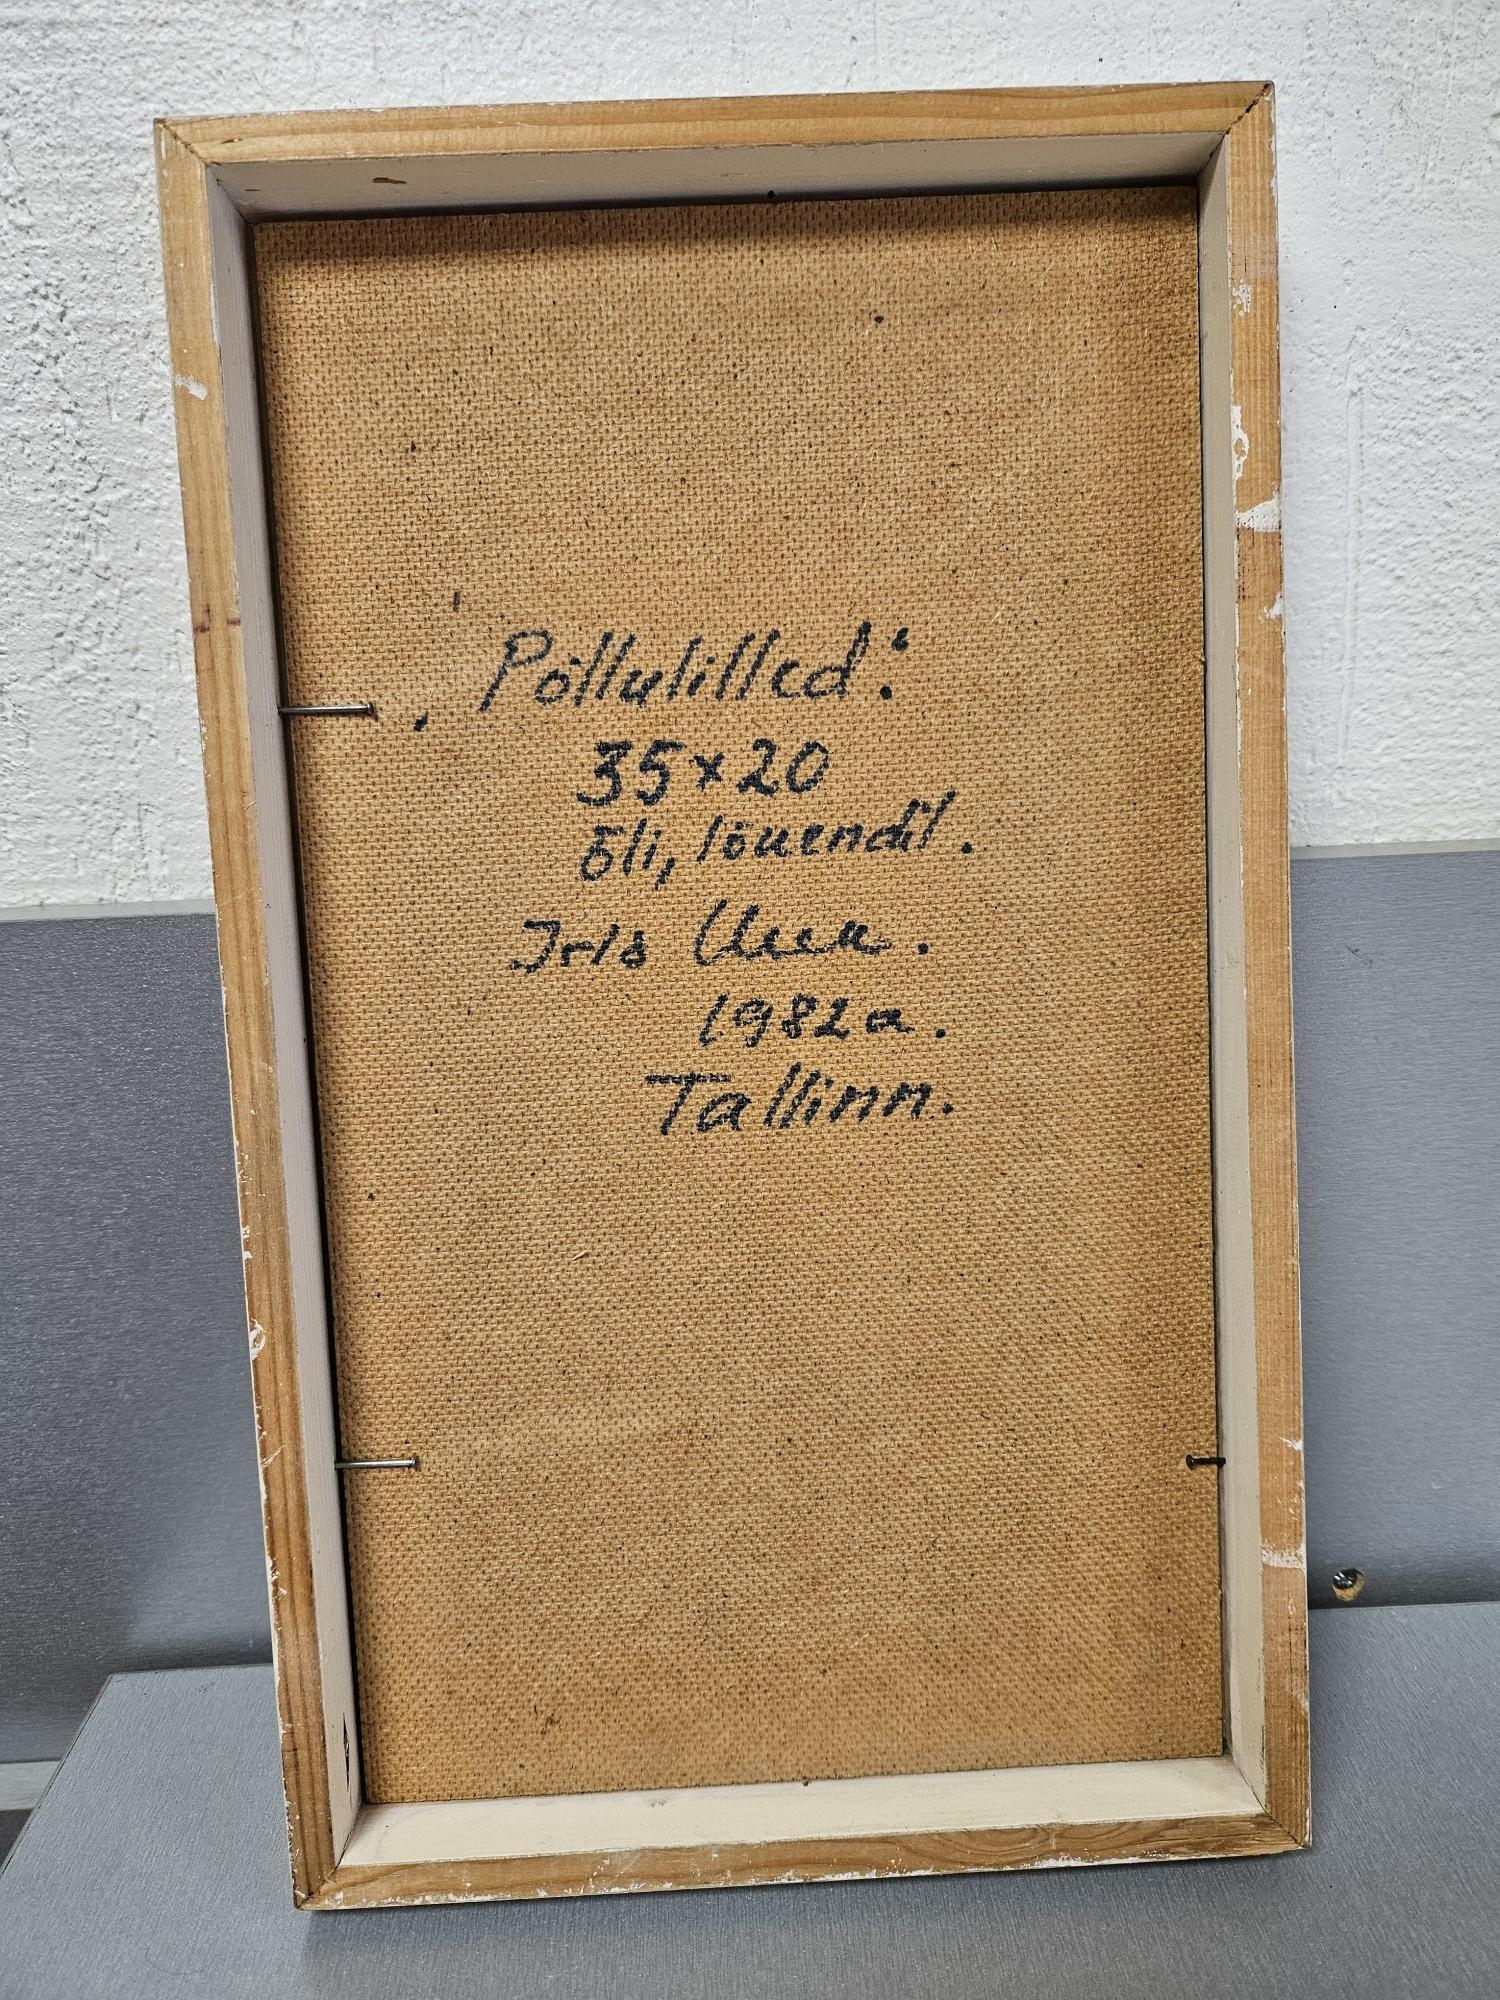 „Põllulilled“.
35×20
Õli, lõuendil.
Iris Uuu.
1982a.
Tallinn.